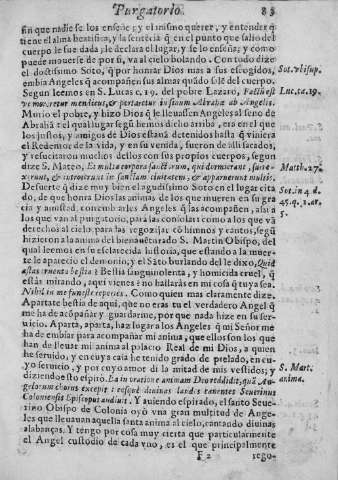 Purgatorio. 83
sin que nadie se los enseñe; y el mismo querer, y entender q̃
tiene el alma beatifica, y la sentēcia q̃ en el punto que saliò del
cuerpo le fue dada; le declara el lugar, y se lo enseña; y como
puede mouerse de por sì, va al cielo bolando. Con todo dize
el doctissimo Soto, q̃ por honrar Dios mas a sus escogidos,
embia Angeles q̃ acompañen sus almas quādo salē del cuerpo.
Segun leemos en S. Lucas c, 19. del pobre Lazaro, Factū est
ve moreretur mendicus, & portaretur in sinum Abrahæ ab Angelis.
Murio el pobre, y hizo Dios q̃ le lleuassen Angeles al seno de
Abrahā: el qual lugar segū hemos dicho arriba, era en el que
los Iustos, y amigos de Dios estauā detenidos hasta q̃ viniera
el Redemor de la vida, y en su venida, fueron de alli sacados,
y resucitaron muchos dellos con sus propios cuerpos, segun
dize S. Mateo, Et multa corpora sanctorum, qui dormierant, surre-
xerunt, & introierunt in sanctam ciuitatem, & apparuerunt multis.
Desuerte q̃ dize muy bien el agudissimo Soto en el lugar cita
do, de que honra Dios las animas de los que mueren en su gra
cia y amistad, con embiarles Angeles q̃ las acompañen, assi a
los que van al purgatorio, para las consolar: como a los que vā
derechos al cielo, para las regozijar cō himnos y cantos, segū
hizieron a la anima del bienauēturado S. Martin Obispo, del
qual leemos en su esclarecida historia, que estando a la muer-
te le aparecio el demonio, y el Sāto burlando del le dixo, Quid
astas cruenta bestia? Bestia sanguinolenta, y homicida cruel, q̃
estàs mirando, aqui vienes? no hallaràs en mi cosa q̃ tuya sea.
Nihil in me funeste reperies. Como quien mas claramente dize.
Apartate bestia de aqui, que no eras tu el verdadero Angel q̃
me ha de acōpañar y guardarme, por que nada hize en su ser-
uicio. Aparta, aparta, haz lugar a los Angeles q̃ mi Señor me
ha de embiar para acompañar mi anima, que ellos son los que
han de lleuar mi anima al palacio Real de mi Dios, a quien
he seruido, y en cuya caia he tenido grado de prelado, en cu-
yo seruicio, y por cuyo amor di la mitad de mis vestidos; y
diziendo esto espirò. Ea in oratione animam Deo reddidit, quā An-
gelorum chorus excepit: eosque deuinas laudes canentes Seuerinus
Coloniensis Episcopus audiuit. Y auiendo espirado, el santo Seue-
rino Obispo de Colonia oyò vna gran multitud de Ange-
les que lleuauan aquella santa anima al cielo, cantando diuinas
alabanças. Y tengo por cosa muy cierta que particularmente
el Angel custodio de cada vno, es el que principalmente
F 2 rego-
Sot. vbi sup.
Luc. ca. 19.
Matth. 27.
Sot. in 4 d.
45. q. 3. ar.
5.
S. Mart.
anima.